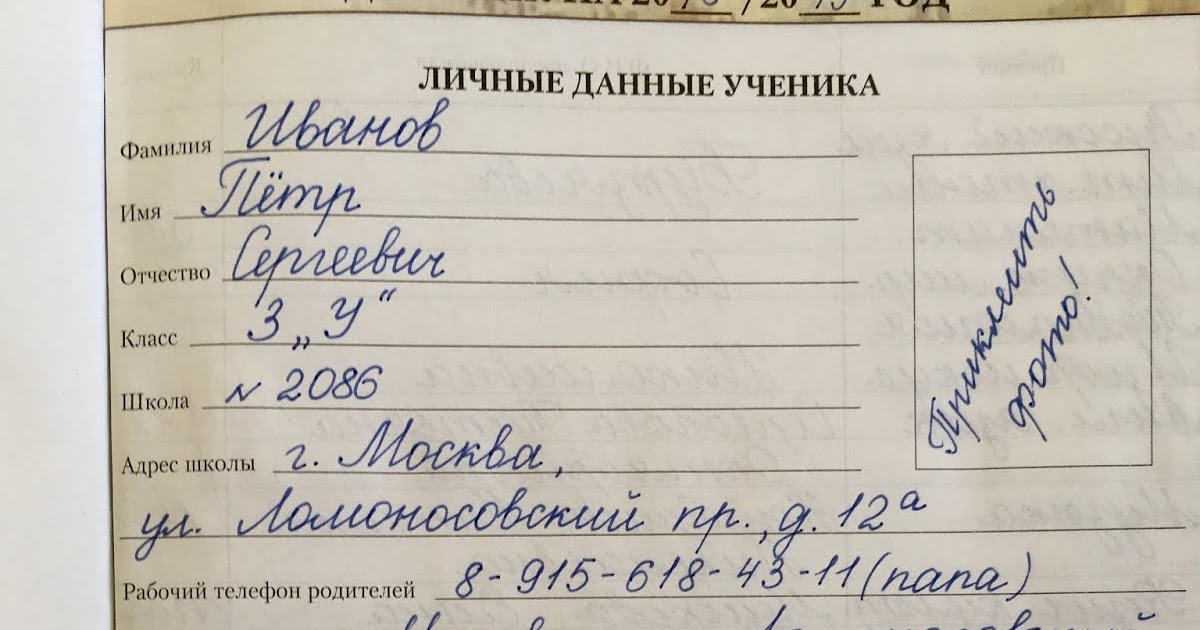 ЛИЧНЫЕ ДАННЫЕ УЧЕНИКА
Фамилия Иванов
Имя Пётр
Отчество Сергеевич
Класс 3 „У“
Школа № 2086
Адрес школы г. Москва,
ул. Ломоносовский пр., д. 12а
Рабочий телефон родителей 8-915-618-43-11 (папа)
Приклеить
фото!